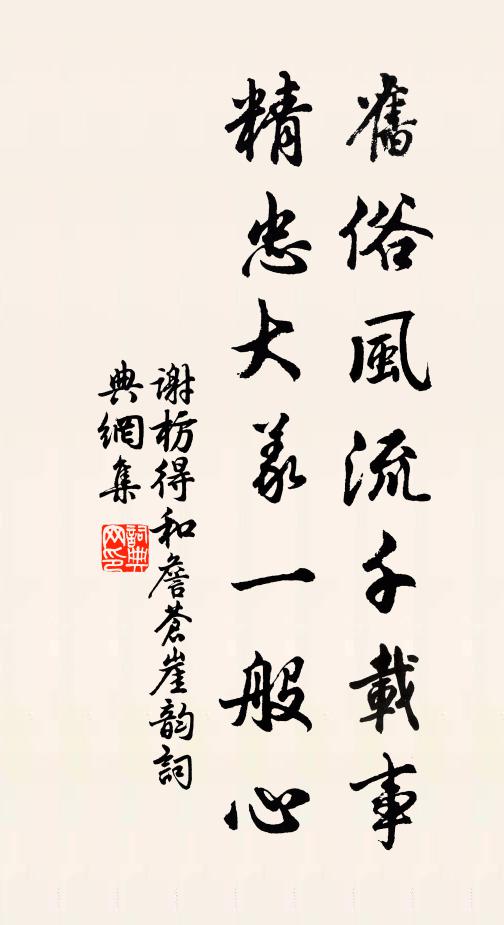 舊俗風流千載事
精忠大義一般心
謝枋得和詹蒼崖韵詞
典網集
詞典網印